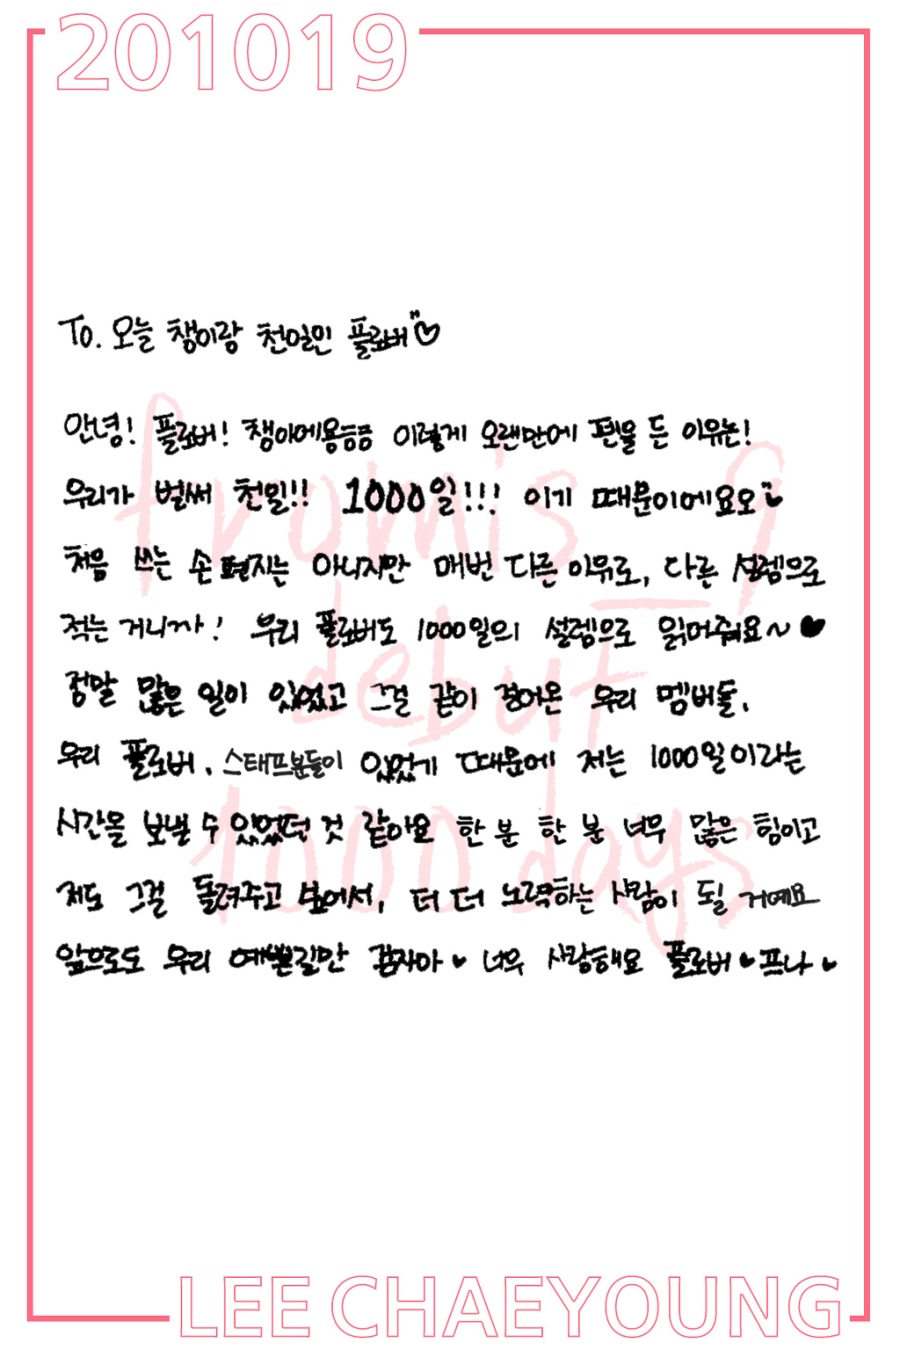 201019
To. 오늘 챙이랑 천일인 플로버♡
안녕! 플로버! 챙이에용용용 이렇게 오랜만에 펜을 든 이유는!
우리가 벌써 천일!! 1000일!!! 이기 때문이에요오
처음 쓰는 손 편지는 아니지만 매번 다른 이유로, 다른 설렘으로
적는 거니까! 우리 플로버도 1000일의 설렘으로 읽어줘요~♥
정말 많은 일이 있었고 그걸 같이 겪어온 우리 멤버들,
우리 플로버, 스태프분들이 있었기 때문에 저는 1000일이라는
시간을 보낼 수 있었던 것 같아요 한 분 한 분 너무 많은 힘이고
저도 그걸 돌려주고 싶어서, 더 더 노력하는 사람이 될 거예요
앞으로도 우리 예쁜길만 걷자아♥ 너무 사랑해요 플로버♥프나♥
fromis_9
debut
1000 days
LEE CHAEYOUNG